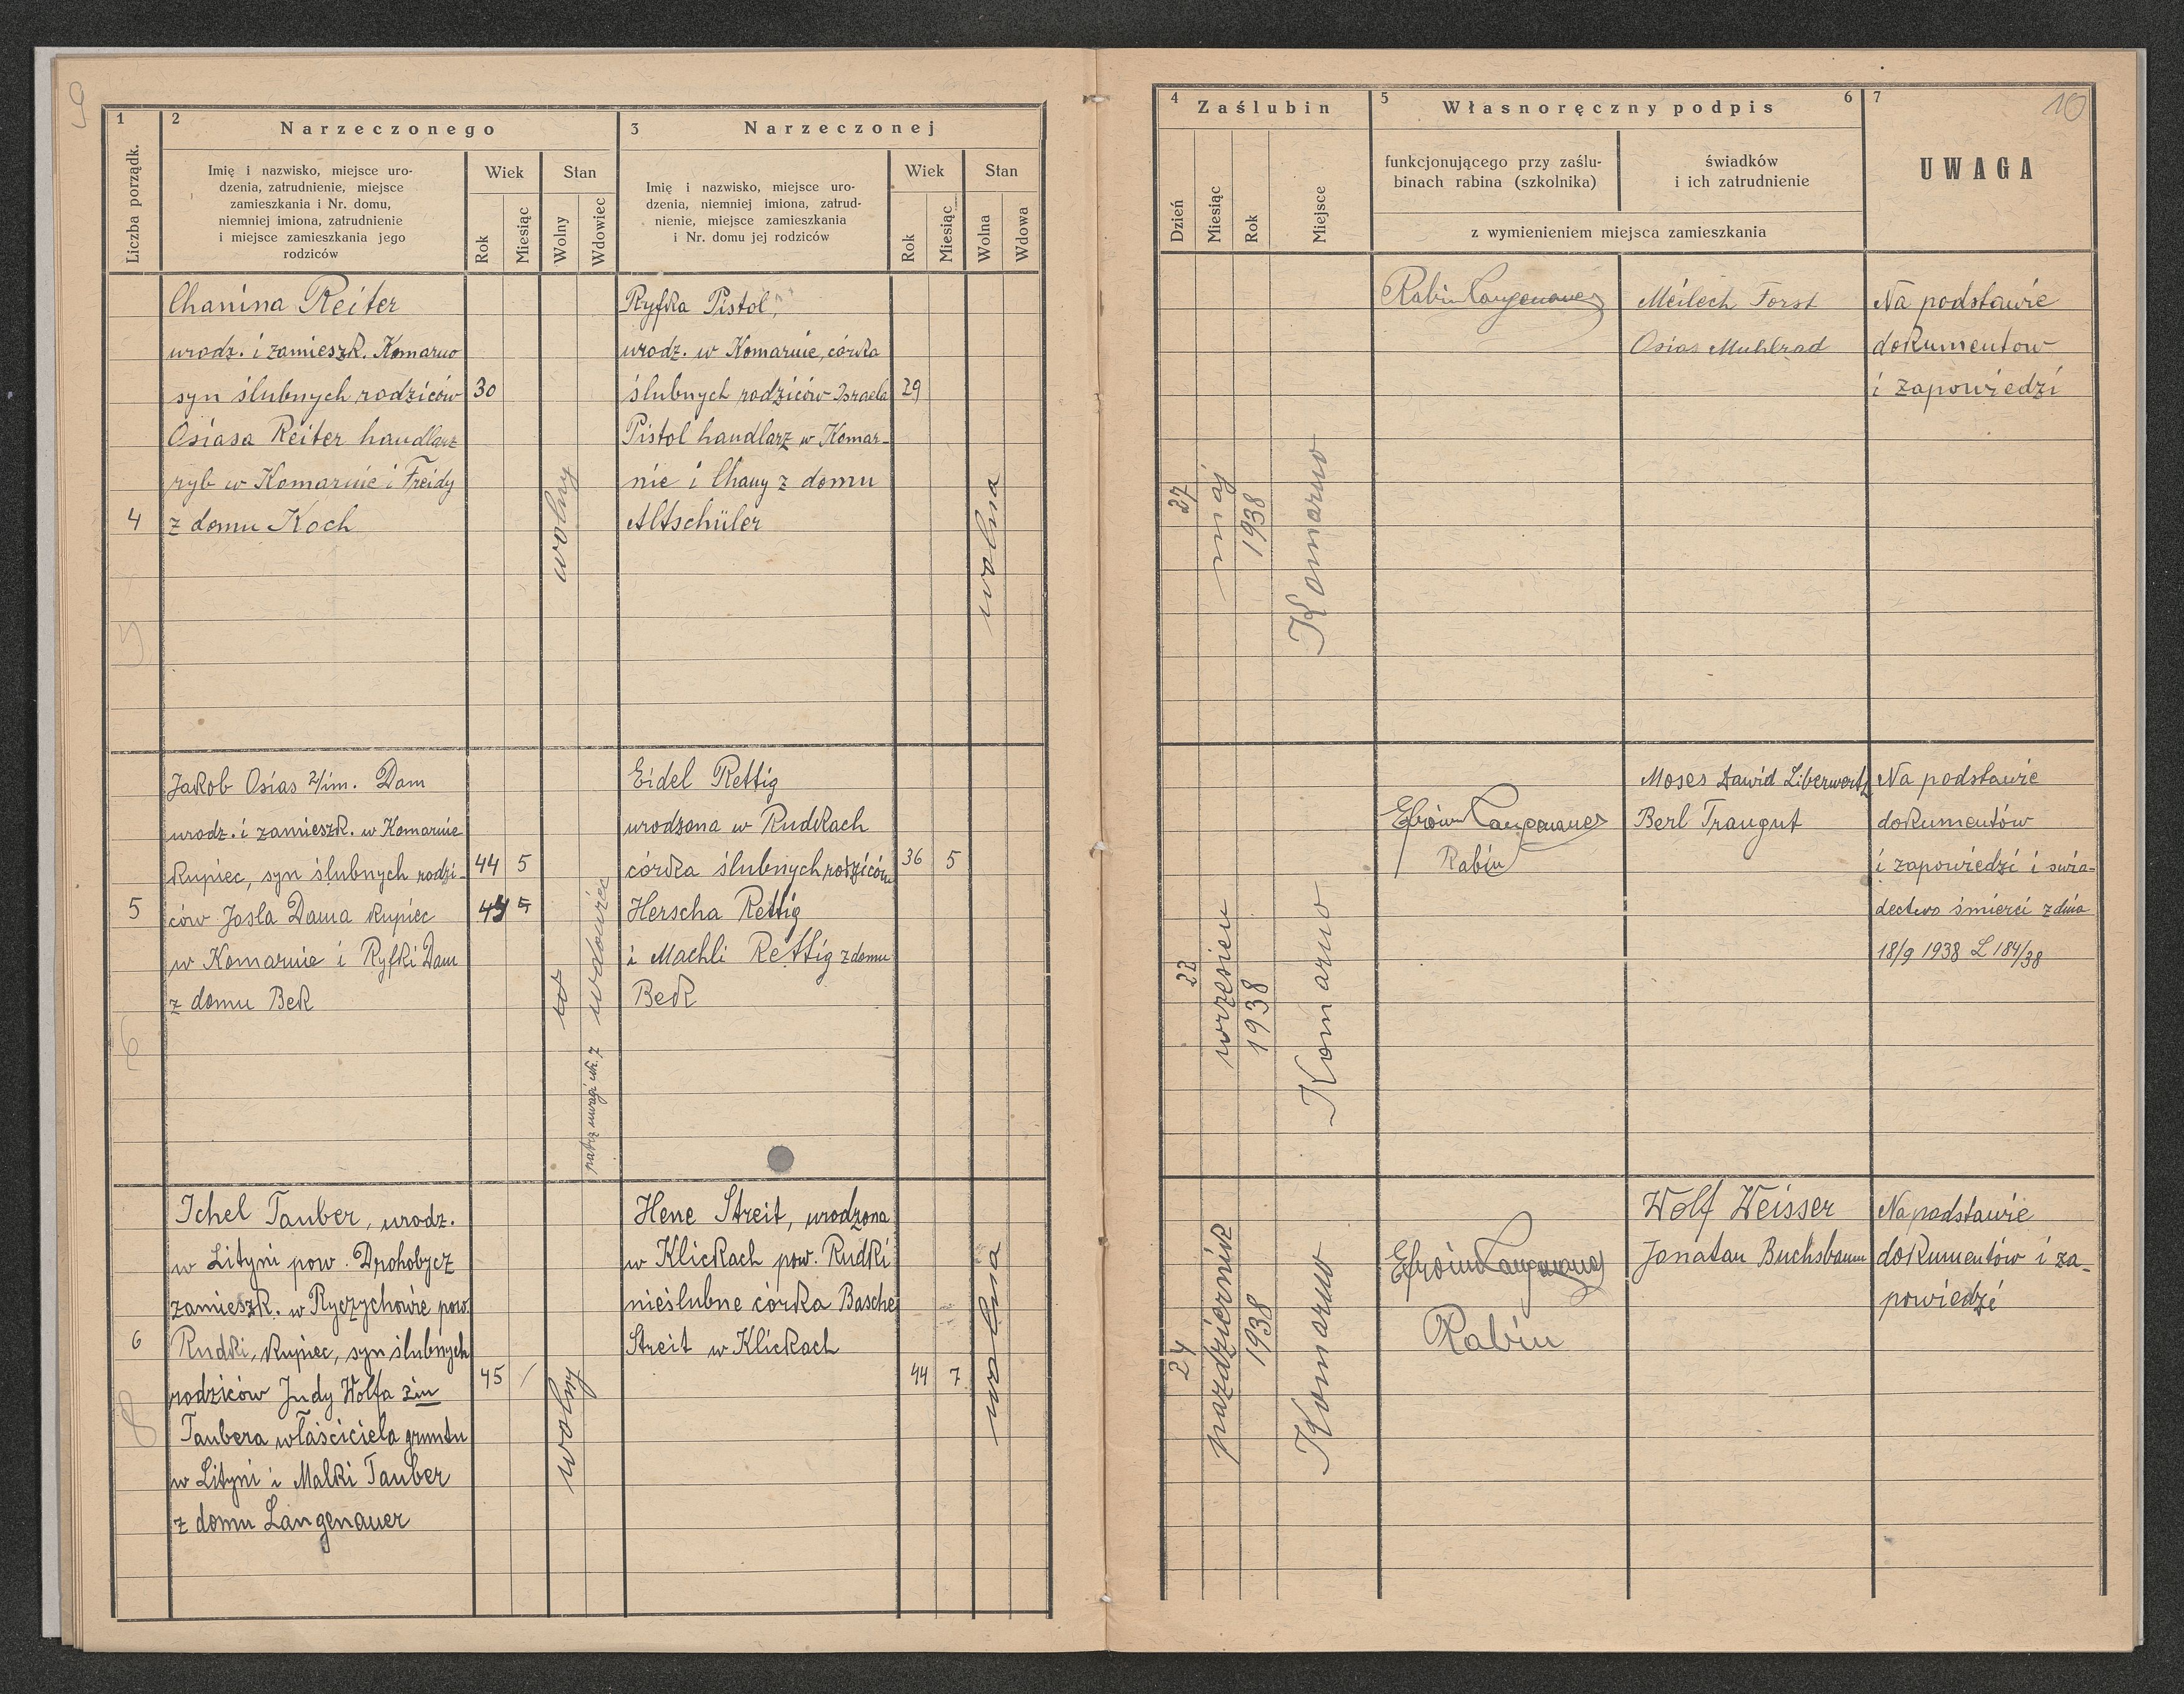 9
1
2
Narzeczonego
3
Narzeczonej
Liczba porządk.
Imię i nazwisko, miejsce uro-
dzenia, zatrudnienie, miejsce
zamieszkania i Nr. domu,
niemniej imiona, zatrudnienie
i miejsce zamieszkania jego
rodziców
Wiek
Rok
Miesiąc
Stan
Wolny
Wdowiec
Imię i nazwisko, miejsce uro-
dzenia, niemniej imiona, zatrud-
nienie, miejsce zamieszkania
i Nr. domu jej rodziców
Wiek
Rok
Miesiąc
Stan
Wolna
Wdowa
4
Chanina Reiter
urodz. i zamieszk. Komarno
syn ślubnych rodziców
Osiasa Reiter handlarz
ryb w Komarnie i Freidy
z domu Koch
30
wolny
Ryfka Pistol,
urodz. w Komarnie, córka
ślubnych rodziców Israela
Pistol handlarz w Komar-
nie i Chany z domu
Altschüler
29
wolna
5
5
Jakob Osias 2/im. Dam
urodz. i zamieszk. w Komarnie
kupiec, syn ślubnych rodzi-
ców Josla Dama kupiec
w Komarnie i Ryfki Dam
z domu Bek
44 5
45 5
w
wdowiec
patrz uwagi rubr. 7
Eidel Rettig
urodzona w Rudkach
córka ślubnych rodziców
Herscha Rettig
i Machli Rettig z domu
Beck
36 5
6
6
Ichel Tauber, urodz.
w Lityni pow. Drohobycz
zamieszk. w Ryczychowie pow.
Rudki, kupiec, syn ślubnych
rodziców Judy Wolfa 2im
Taubera właściciela gruntu
w Lityni i Malki Tauber
z domu Langenauer
45 /
wolny
Hene Streit, urodzona
w Klickach pow. Rudki
nieślubne córka Basche
Streit w Klickach
44 7
wolna
8
10
4
Zaślubin
5
Własnoręczny podpis
6
7
Dzień
Miesiąc
Rok
Miejsce
funkcjonującego przy zaślu-
binach rabina (szkolnika)
świadków
i ich zatrudnienie
z wymienieniem miejsca zamieszkania
UWAGA
27
maj
1938
Komarno
Rabin Langenauer
Meilech Forst
Osias Muhlrad
Na podstawie
dokumentow
i zapowiedzi
22
wrzesien
1938
Komarno
Efroim Langenauer
Rabin
Moses Dawid Liberwerth
Berl Traugut
Na podstawie
dokumentów
i zapowiedzi i swia-
dectwo śmierci z dnia
18/9 1938 L 184/38
24
pazdziernik
1938
Komarno
Efroim Langenauer
Rabin
Wolf Weisser
Jonatan Buchsbaum
Na podstawie
dokumentów i za-
powiedzi